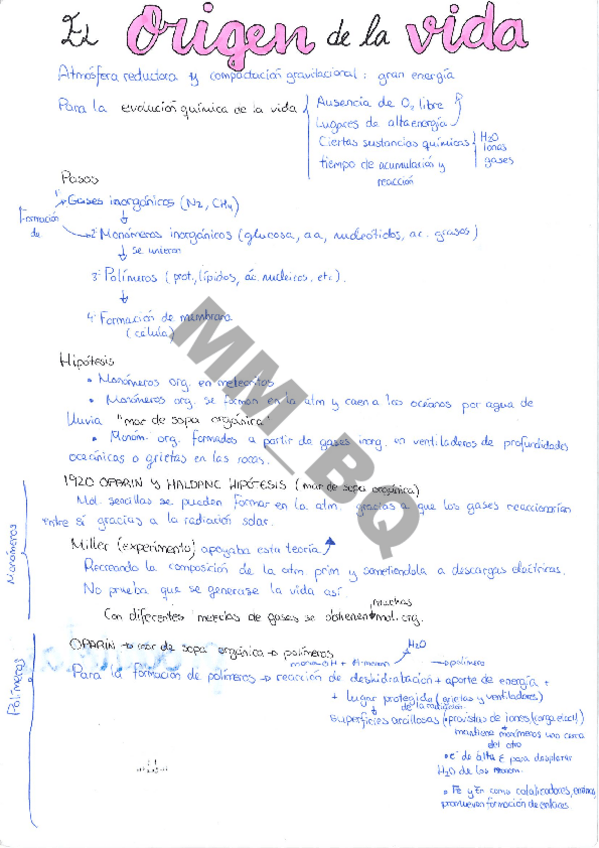 El Origen de la vida
Atmósfera reductora y compactación gravitacional: gran energía
Para la evolución química de la vida
Ausencia de O2 libre
Lugares de alta energía
Ciertas sustancias químicas
H2O
iones
gases
tiempo de acumulación y
reacción
Pasos
Formación
de
1º Gases inorgánicos (N2, CH4)
2º Monómeros inorgánicos (glucosa, aa, nucleótidos, ac. grasos)
se unieron
3º Polímeros (prot., lípidos, ác. nucleicos. etc).
4º Formación de membrana
(célula)
Hipótesis
• Monómeros org. en meteoritos
• Monómeros org. se forman en la atm y caen a los océanos por agua de
lluvia "mar de sopa orgánica"
• Monóm. org. formados a partir de gases inorg. en ventiladeros de profundidades
oceánicas o grietas en las rocas.
Monómeros
1920 OPARIN Y HALDANE HIPÓTESIS (mar de sopa orgánica)
Mol. sencillas se pueden formar en la atm. gracias a que los gases reaccionarían
entre sí gracias a la radiación solar.
Miller (experimento) apoyaba esta teoría
Recreando la composición de la atm prim y sometiendola a descargas eléctricas.
No prueba que se generase la vida así.
Con diferentes mezclas de gases se obtienen muchas mol. org.
Polímeros
OPARIN → mar de sopa orgánica → polímeros
H2O
→ polímero
Para la formación de polímeros → reacción de deshidratación + aporte de energía +
+ lugar protegido (grietas y ventiladeros)
de la radiación.
Superficies arcillosas • provistas de iones (carga eléct.)
mantiene monómeros uno cerca
del otro
• e- de alta E para desplazar
H2O de los monom.
• Fe y Zn como catalizadores,
promueven formación de enlaces
MM_BQ